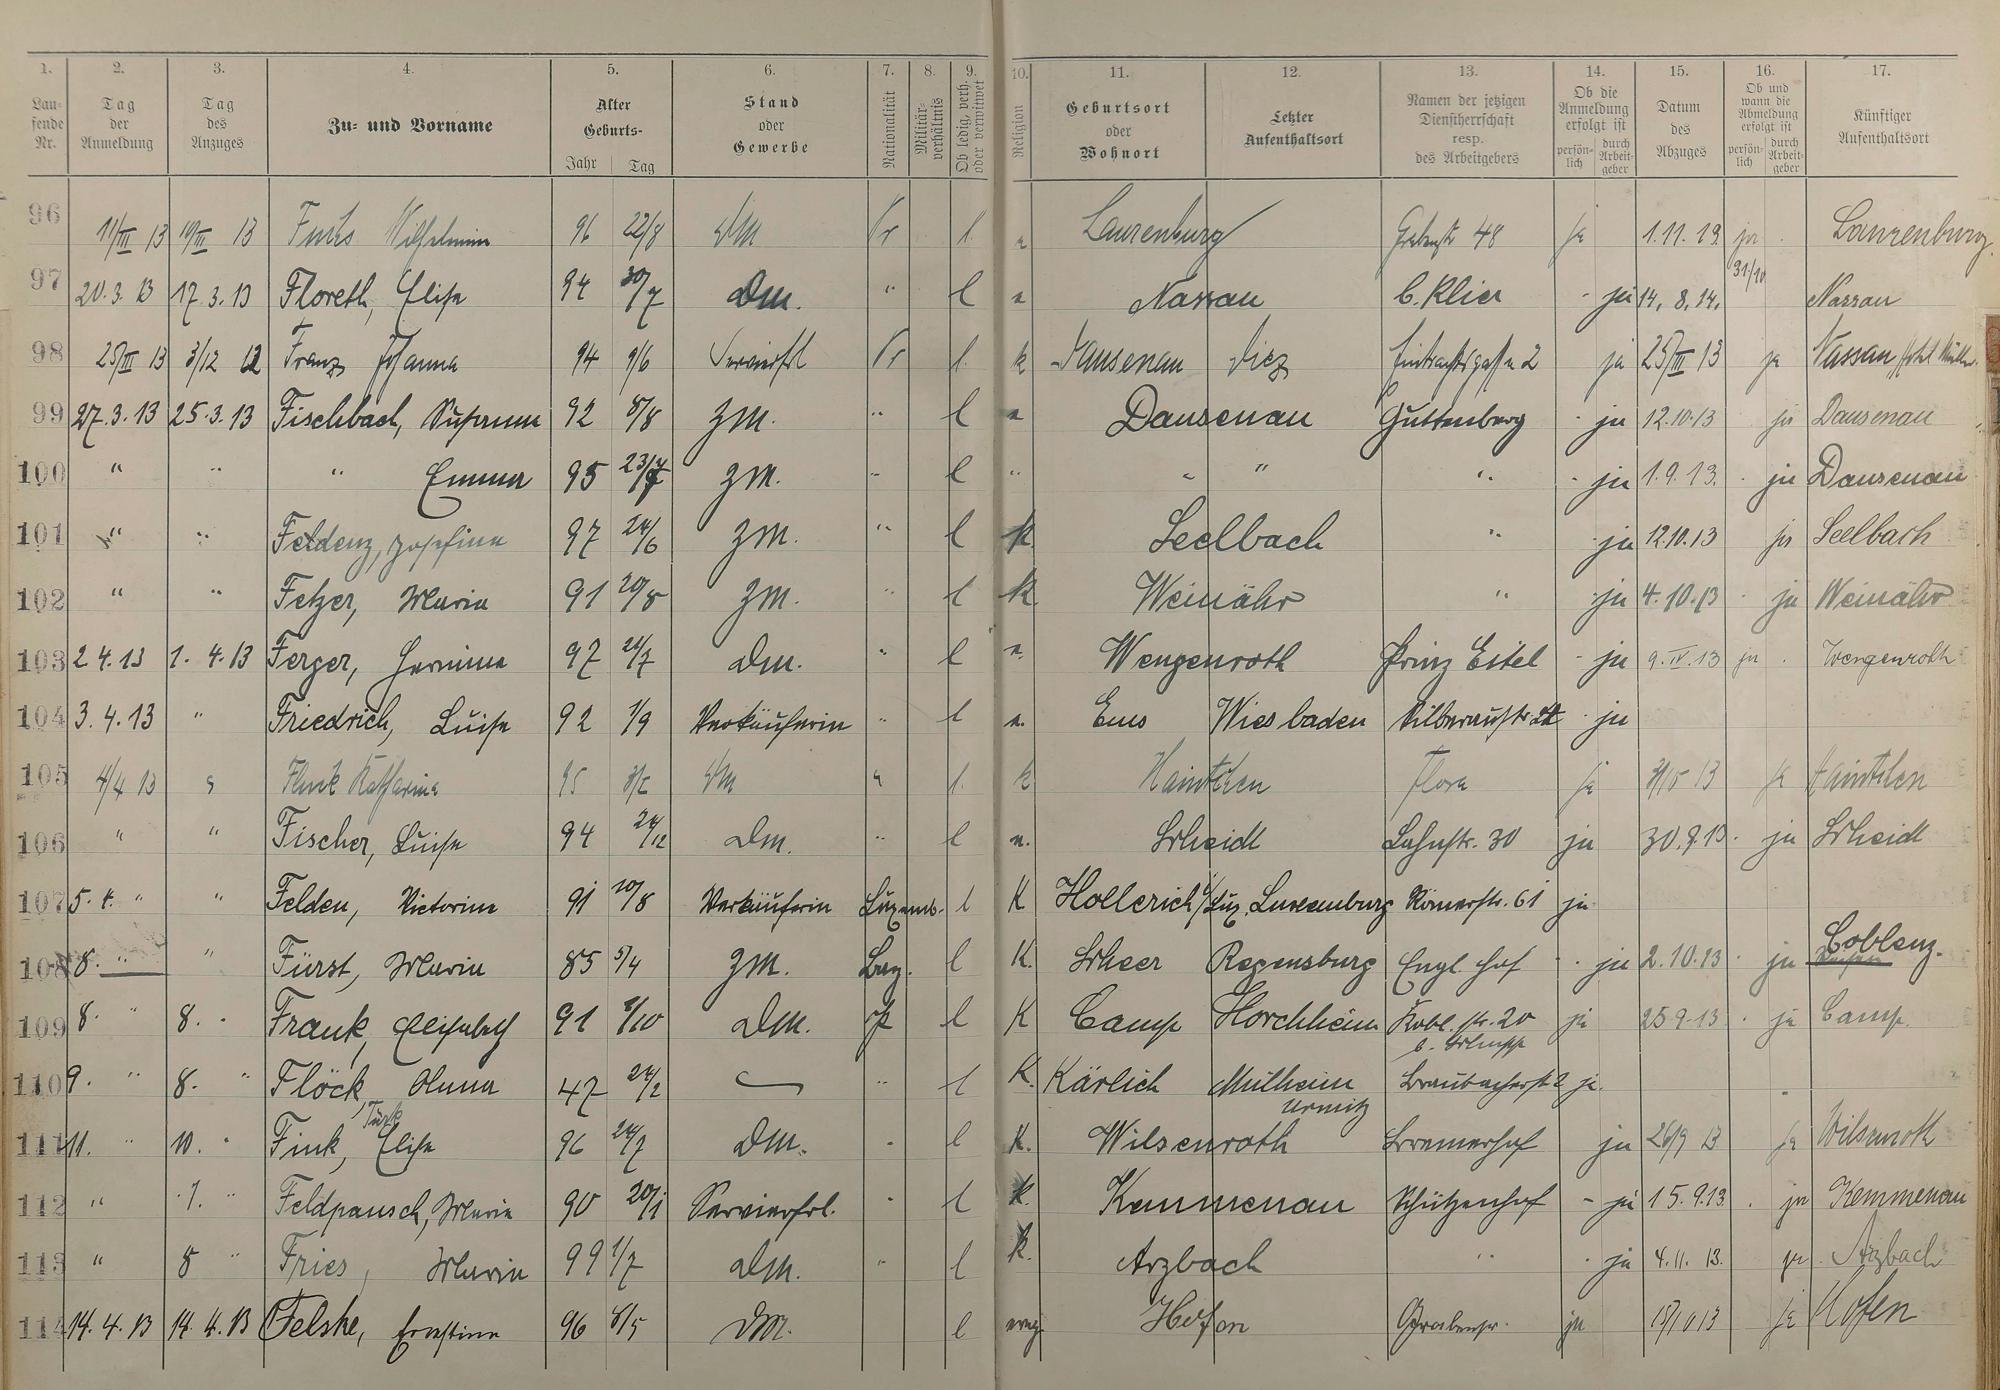 1. 2. 3. 4. 5. 6. 7. 8. 9. 10. 11. 12. 13. 14. 15. 16. 17.
Lau-
fende
Nr.
Tag
der
Anmeldung
Tag
des
Anzuges
Zu- und Vorname
Alter
Geburts-
Jahr Tag
Stand
oder
Gewerbe
Nationalität
Militär-
verhältnis
Ob ledig, verh.
oder verwitwet
Religion
Geburtsort
oder
Wohnort
Letzter
Aufenthaltsort
Namen der jetzigen
Dienstherrschaft
resp.
des Arbeitgebers
Ob die
Anmeldung
erfolgt ist
persön-
lich
durch
Arbeit-
geber
Datum
des
Abzuges
Ob und
wann die
Abmeldung
erfolgt ist
persön-
lich
durch
Arbeit-
geber
Künftiger
Aufenthaltsort
96 11/III 13 10/III 13 Fuchs Wilhelmine 96 22/8 DM Pr l. Laurenburg Grabenstr 48 ja 1.11.13 ja Laurenburg
31/10
97 20.3.13 17.3.13 Floreth, Elise 94 30/7 Dm. " l Nassau C. Klier - ja 14.8.14. Nassau
98 25/III 13 3/12 12 Franz Johanna 94 9/6 Servierfrl Pr l. k Dausenau Diez 2 ja 25/III 13 ja Nassau, Hotel Müller
99 27.3.13 25.3.13 Fischbach, Susanne 92 8/8 ZM. " l Dausenau Guttenberg - ja 12.10.13 ja Dausenau
100 " " " Emma 95 23/7 ZM. " l " " " " - ja 1.9.13. ja Dausenau
101 " " Feldenz, Josefine 97 24/6 ZM. " l k Seelbach " ja 12.10.13 ja Seelbach
102 " " Fetzer, Maria 91 20/8 ZM. " l k Weinähr " ja 4.10.13 ja Weinähr
103 2.4.13 1.4.13 Ferger, Hermine 97 24/7 Dm. " l Wengenroth Prinz Eitel - ja 9.IV.13 ja Wengenroth
104 3.4.13 " Friedrich, Luise 92 1/9 Verkäuferin " l Ems Wiesbaden Silberaustr. ja
105 4/4 13 " Katharina 95 DM " l. k Haintchen Flora ja 13 ja Haintchen
106 " " Fischer, Luise 94 24/12 Dm. " l Scheidt Lahnstr. 30 ja 30.9.13. ja Scheidt
107 5.4. " " Felden, Victorine 91 10/8 Verkäuferin Luxemb. l K Hollerich i/Lux. Luxemburg Römerstr. 61 ja
108 8. " " Fürst, Maria 85 5/4 ZM. Bay. l K. Scheer Regensburg Engl. Hof - ja 2.10.13 ja Coblenz.
109 8. " 8. " Frank, Elisabeth 91 /10 DM. P l K Camp Horchheim Kobl. str. 20 ja 25.9.13 ja Camp.
110 9. " 8. " Flöck Anna 47 24/2 " l K. Kärlich Mülheim Braubacherstr. 2 ja.
Urmitz
111 11. " 10. " Fink, Elise 96 24/7 DM. " l K. Wilsenroth Bremerhof ja 26/9 13 ja Wilsenroth
112 " 7. " Feldpausch, Maria 90 20/1 Servierfrl. " l k. Kemmenau Schützenhof - ja 15.9.13. ja Kemmenau
113 " 8 " Fries, Maria 99 1/7 DM. " l k. Arzbach " ja 4.11.13. ja Arzbach
114 14.4.13 14.4.13 Felske, Ernstine 96 8/5 DM. l evang. Hofen Grabenstr. ja 13 ja Hofen